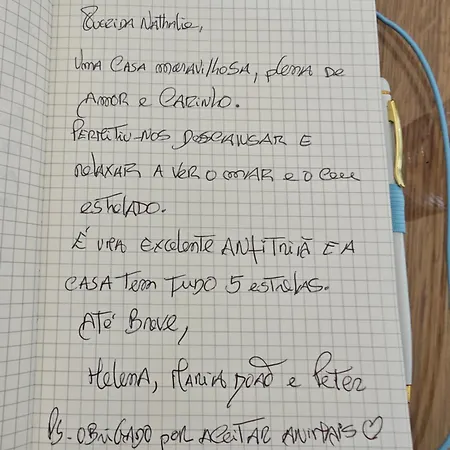 Querida Nathalie,
Uma casa maravilhosa, plena de
amor e carinho.
Permitiu-nos descansar e
relaxar a ver o mar e o céu
estrelado.
É uma excelente anfitriã e a
casa tem tudo 5 estrelas.
Até Breve,
Helena, Maria João e Peter
Ps. Obrigado por aceitar animais ♡